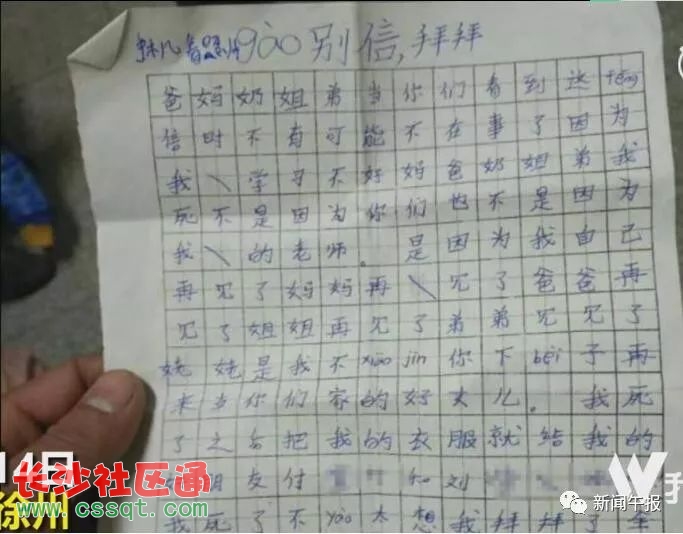 gào别信,拜拜
爸妈奶姐弟当你们看到这fēng
信时不有可能不在事了因为
我\学习不好妈爸奶姐弟我
死不是因为你们也不是因为
我\的老师。是因为我自己
再见了妈妈再\见了爸爸再
见了姐姐再见了弟弟见见了
姥姥是我不xiào jìn你下bèi子再
来当你们家的好女儿。我死
了之后把我的衣服就给我的
朋友付 和刘
我死了不yào太想我拜拜了
14日
徐州
长沙社区通
www.cssqt.com
新闻午报